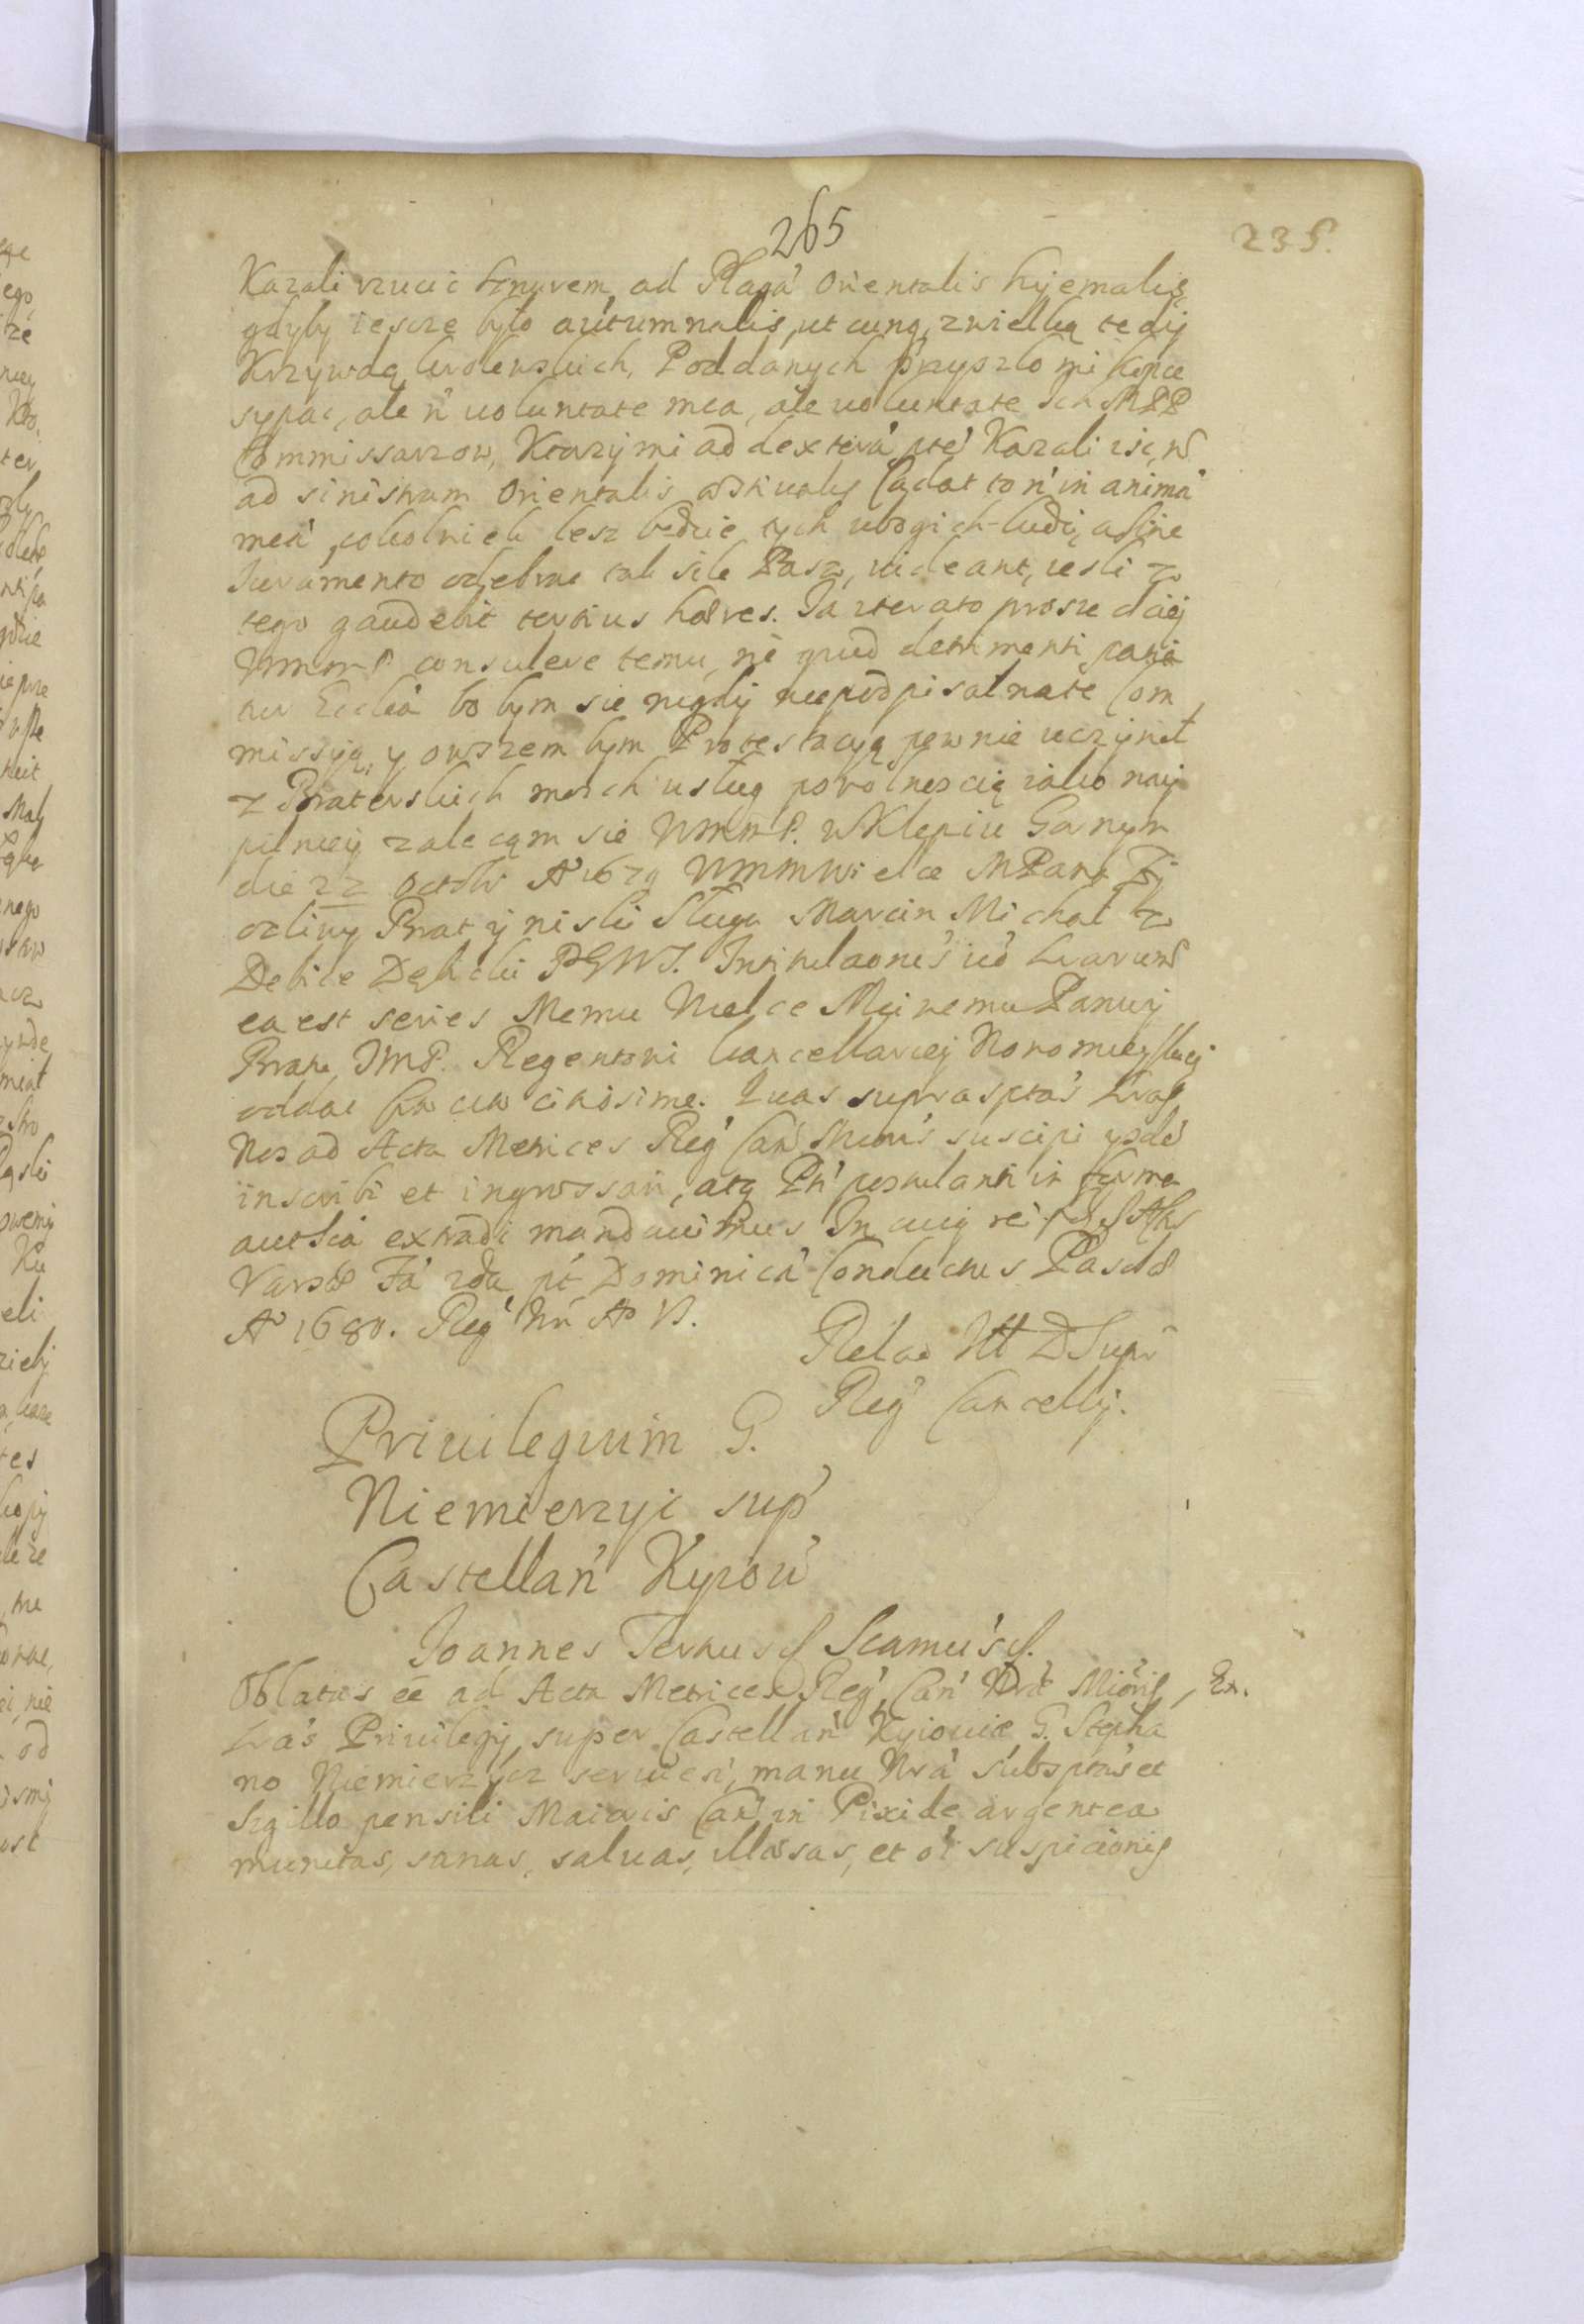 265
235.
Kazali rzucić sznurem ad Plagā Orientalis hyemalis,
gdyby iescze było autumnalis, ut cunq, z wielką tedy
Krzywdą krolewskich Poddanych przyszło mi kopce
sypac, ale ń uoluntate mea, ale uoluntate Ich MPP
Commissarzow, Ktorzy mi ad dexterā ptē Kazali isc, ń
ad sinistram Orientalis Cadat to ń in animā
meā, cokolwiek łesz będzie tych ubogich ludzi, a sine
Iuramento odebrae tak siła Pasz, uideant, iesli z
tego gaudebit tertius haeres. Ia iterato prosze
WmmP. consulere temu, ne quid detrimenti
Eccliā bo bym sie nigdy niepodpisał na te Com
missyą, y owszem bym Protestacyą pewnie uczynił
z Braterskich moich usług powolnoscią iako naij
pilniey zalecam sie WmmP. w Klepiu Garnym
die 22 Octobr A° 1679 WMM Wielce MPana Zy
czliwy Brat y niski sługa Marcin Michał z
Debice Dębicki PGWS. Intitulaonis uō Lrarum
ea est series Memu Wielce Mciwemu Panu y
Bratu JmP. Regentowi Cancellariey Nowomieyskiey
oddac citissime. Quas suprasptas Lras
Nos ad Acta Metrices Reg Can Maioris suscipi ysde
inscribi et ingrossari, atq Pń postulanti in forma
autḣca extradi mandauimus In cuiq rei fidem
Vars Fa 2da pt Dominicā Conductus Paschae
A° 1680. Reg Nri A° VI.
Relao Ill D Supr
Reg Cancellrij.
Priuilegium G.
Niemierzyc sup
Castellań Kyiou
Ioannes Tertius &c Scamus &c.
Oblatas eē ad Acta Metrices Reg Can Nrae Mioris, Ex.
Lras Priuilegij super Castellań Kyiouie G. Stepha
no Niemierzycz seruień, manu Nrā subsptas et
Sigillo pensili Maioris Can in Pixide argentea
munitas, sanas, saluas, illaesas, et oī suspicionis